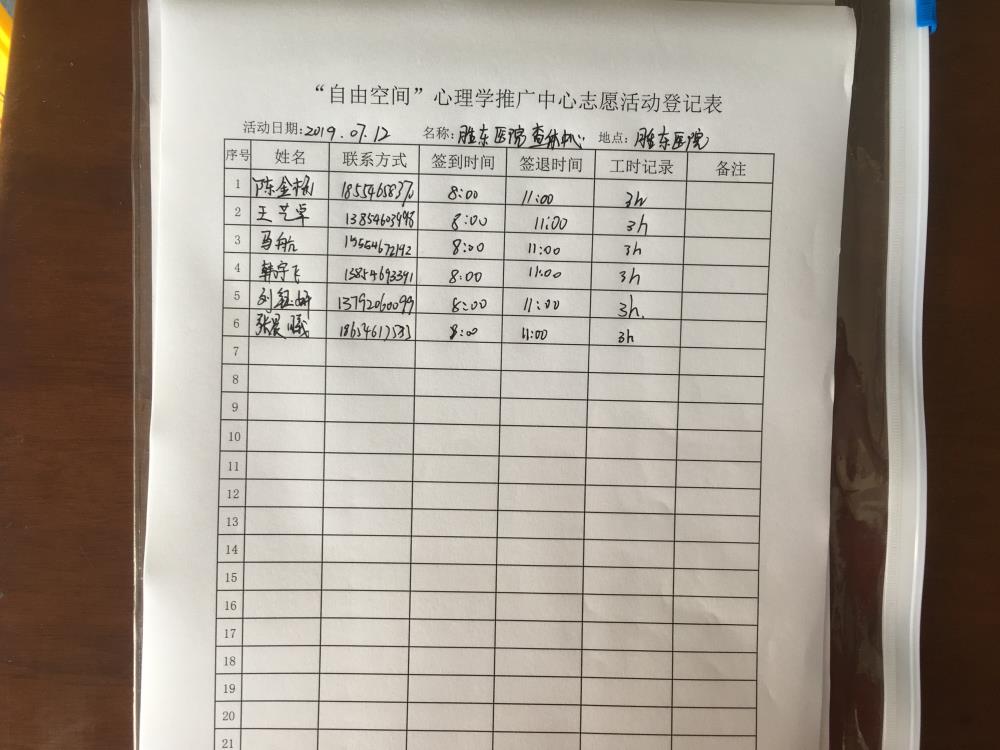 “自由空间”心理学推广中心志愿活动登记表
活动日期:2019.07.12 名称:胜东医院查体中心 地点:胜东医院
序号 姓名 联系方式 签到时间 签退时间 工时记录 备注
1 陈金 8:00 11:00 3h
2 王艺卓 13854603998 8:00 11:00 3h
3 马船 15554672192 8:00 11:00 3h
4 韩宇飞 13854693391 8:00 11:00 3h
5 刘钰妍 13792060099 8:00 11:00 3h.
6 张晨曦 18654617533 8:00 11:00 3h
7
8
9
10
11
12
13
14
15
16
17
18
19
20
21